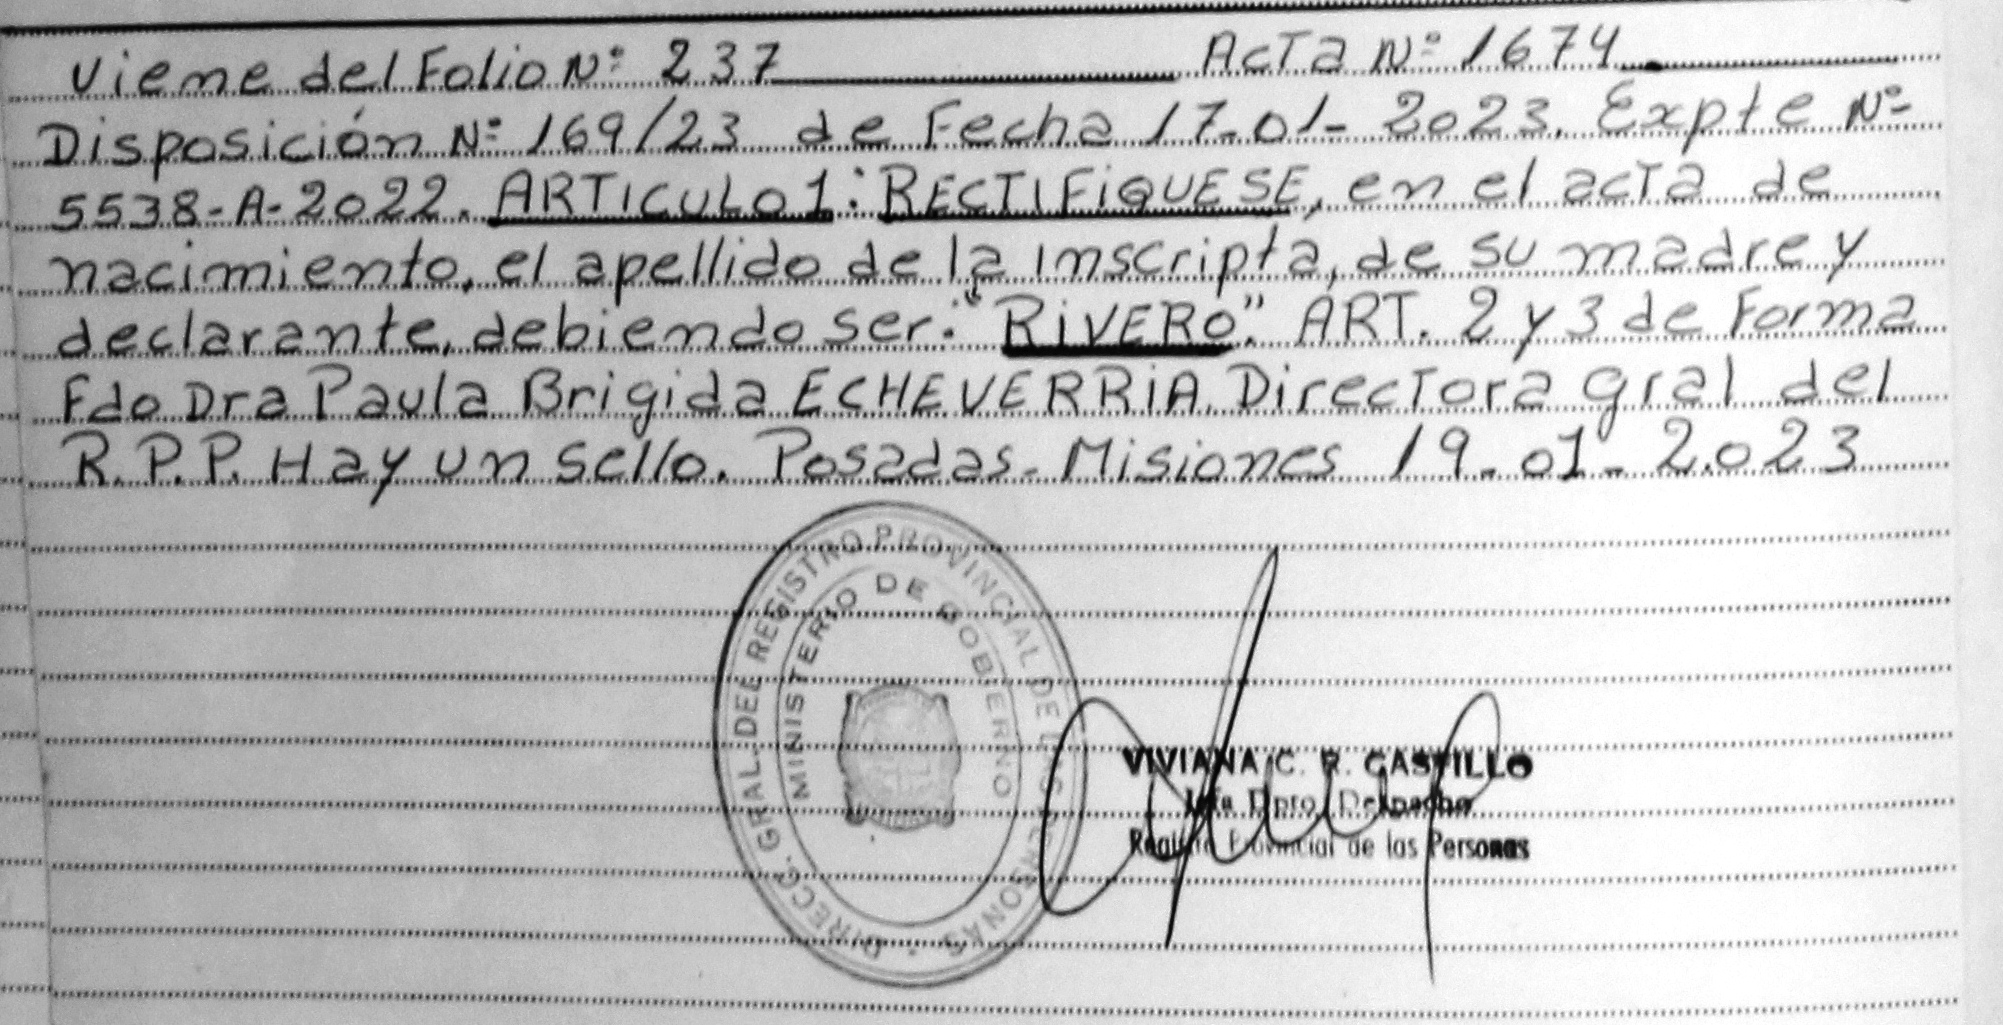 Viene del Folio Nº 237 Acta Nº 1674
Disposición Nº 169/23 de Fecha 17-01-2023. Expte Nº
5538-A-2022. ARTICULO 1: RECTIFIQUESE, en el acta de
nacimiento, el apellido de la inscripta, de su madre y
declarante, debiendo ser: "RIVERO". ART. 2 y 3 de Forma
Fdo Dra Paula Brigida ECHEVERRIA. Directora gral del
R.P.P. Hay un sello. Posadas - Misiones 19-01-2.023
DIRECC. GRAL. DEL REGISTRO PROVINCIAL DE LAS PERSONAS
MINISTERIO DE GOBIERNO
VIVIANA C. R. CASTILLO
Jefa Dpto. Despacho
Registro Provincial de las Personas